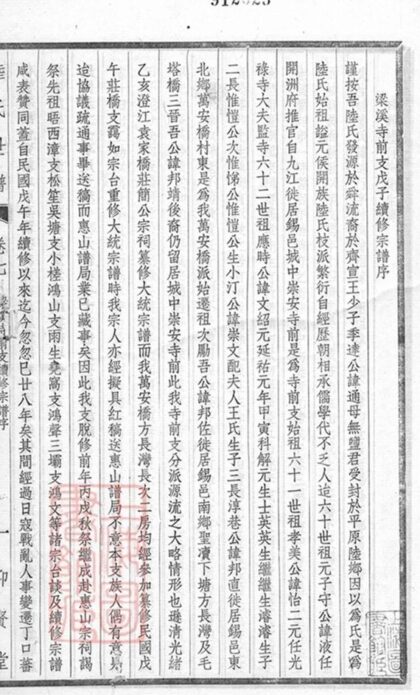 梁溪寺前支戊子續修宗譜序
謹按吾陸氏發源於舜流裔於齊宣王少子季達公諱通母無鹽君受封於平原陸鄉因以為氏是為
陸氏始祖謚元侯開族陸氏枝派繁衍自經歷朝相承儒學代不乏人迨六十世祖元子守公諱液任
開洲府推官自九江徙居錫邑城中崇安寺前是為寺前支始祖六十一世祖孝美公諱怡二元任光
祿寺大夫監寺六十二世祖應時公諱文紹元延祐元年甲寅科解元生士英英生繼繼生濬濬生子
二長惟愷公次惟悌公惟愷公生小汀公諱崇文配夫人王氏生子三長淳巷公諱邦直徙居錫邑東
北鄉萬安橋村東是為我萬安橋派始遷祖次勵吾公諱邦佐徙居錫邑南鄉聖瀆下塘方長灣及毛
塔橋三晉吾公諱邦靖後裔仍留居城中崇安寺前此我寺前支分派源流之大略情形也遜清光緒
乙亥澄江袁家橋莊簡公宗祠纂修大統宗譜而我萬安橋方長灣長次二房均經參加纂修民國戊
午莊橋支靄如宗台重修大統宗譜時我宗人亦經擬具紅稿送惠山譜局不意本支族人偶有意見
迨協議疏通事畢送稿而惠山譜局業已藏事矣因此我支脫修前年丙戌秋祭繼成赴惠山宗祠謁
祭先祖晤西漳支松笙吳塘支小槎鴻山支雨生堯窩支鴻聲三壩支鴻文等諸宗台談及續修宗譜
咸表贊同蓋自民國戊午年續修以來迄今忽忽已廿八年矣其間經過日寇戰亂人事變遷丁口蕃
陸氏世譜
卷七
寺前支續修宗譜序
一
仰賢堂